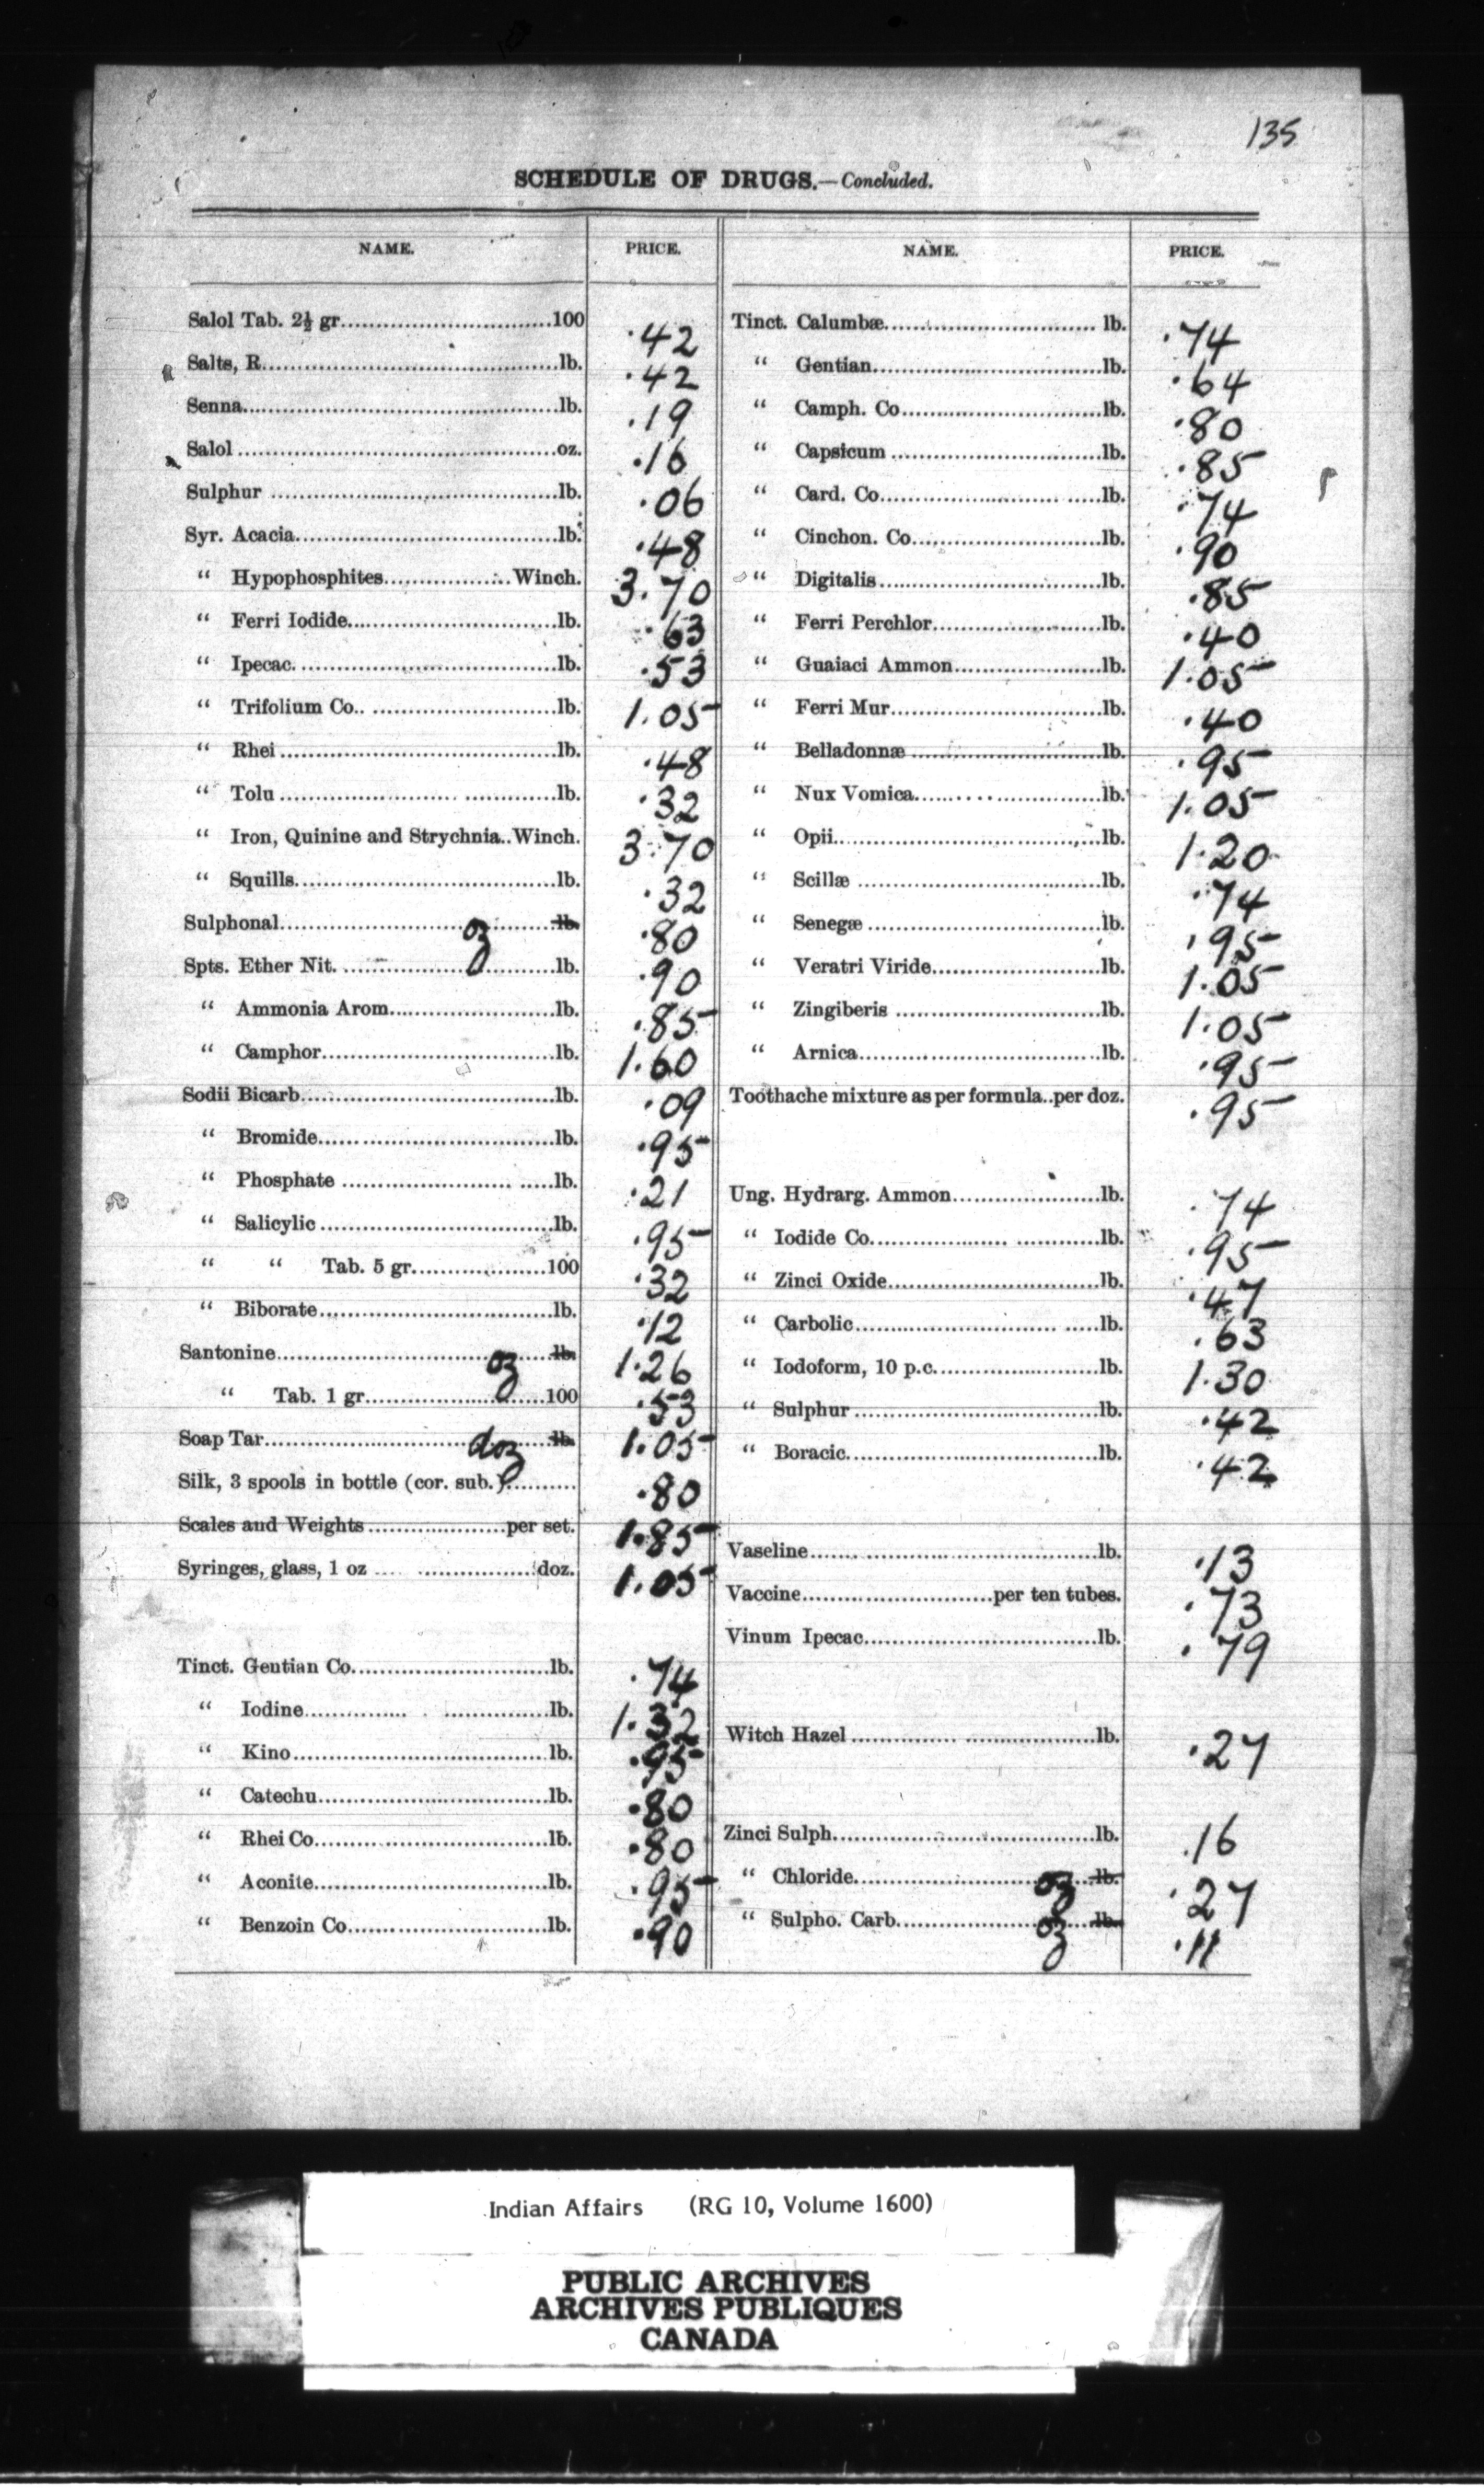 135
SCHEDULE OF DRUGS.—Concluded.
NAME. PRICE.
Salol Tab. 2½ gr..............................100 .42
Salts, R..............................lb. .42
Senna..............................lb. .19
Salol..............................oz. .16
Sulphur..............................lb. .06
Syr. Acacia..............................lb. .48
“ Hypophosphites..................Winch. 3.70
“ Ferri Iodide..............................lb. .63
“ Ipecac...............................lb. .53
“ Trifolium Co...............................lb. 1.05
“ Rhei..............................lb. .48
“ Tolu..............................lb. .32
“ Iron, Quinine and Strychnia..Winch. 3.70
“ Squills..............................lb. .32
Sulphonal..............................oz lb. .80
Spts. Ether Nit...............................lb. .90
“ Ammonia Arom........................lb. .85
“ Camphor..............................lb. 1.60
Sodii Bicarb..............................lb. .09
“ Bromide..............................lb. .95
“ Phosphate..............................lb. .21
“ Salicylic..............................lb. .95
“ “ Tab. 5 gr....................100 .32
“ Biborate..............................lb. .12
Santonine..............................oz lb. 1.26
“ Tab. 1 gr..........................100 .53
Soap Tar..............................doz lb. 1.05
Silk, 3 spools in bottle (cor. sub.).......... .80
Scales and Weights....................per set. 1.85
Syringes, glass, 1 oz....................doz. 1.05
Tinct. Gentian Co..........................lb. .74
“ Iodine..............................lb. 1.32
“ Kino..............................lb. .95
“ Catechu..............................lb. .80
“ Rhei Co..............................lb. .80
“ Aconite..............................lb. .95
“ Benzoin Co..........................lb. .90
NAME. PRICE.
Tinct. Calumbæ..............................lb. .74
“ Gentian..............................lb. .64
“ Camph. Co..........................lb. .80
“ Capsicum..............................lb. .85
“ Card. Co..............................lb. .74
“ Cinchon. Co..........................lb. .90
“ Digitalis..............................lb. .85
“ Ferri Perchlor........................lb. .40
“ Guaiaci Ammon....................lb. 1.05
“ Ferri Mur..............................lb. .40
“ Belladonnæ..........................lb. .95
“ Nux Vomica..........................lb. 1.05
“ Opii..............................lb. 1.20
“ Scillæ..............................lb. .74
“ Senegæ..............................lb. .95
“ Veratri Viride........................lb. 1.05
“ Zingiberis..............................lb. 1.05
“ Arnica..............................lb. .95
Toothache mixture as per formula..per doz. .95
Ung. Hydrarg. Ammon....................lb. .74
“ Iodide Co..............................lb. .95
“ Zinci Oxide..............................lb. .47
“ Carbolic..............................lb. .63
“ Iodoform, 10 p.c......................lb. 1.30
“ Sulphur..............................lb. .42
“ Boracic..............................lb. .42
Vaseline..............................lb. .13
Vaccine..........................per ten tubes. .73
Vinum Ipecac..............................lb. .79
Witch Hazel..............................lb. .27
Zinci Sulph..............................lb. .16
“ Chloride..............................oz lb. .27
“ Sulpho. Carb..........................oz lb. .11
Indian Affairs (RG 10, Volume 1600)
PUBLIC ARCHIVES
ARCHIVES PUBLIQUES
CANADA